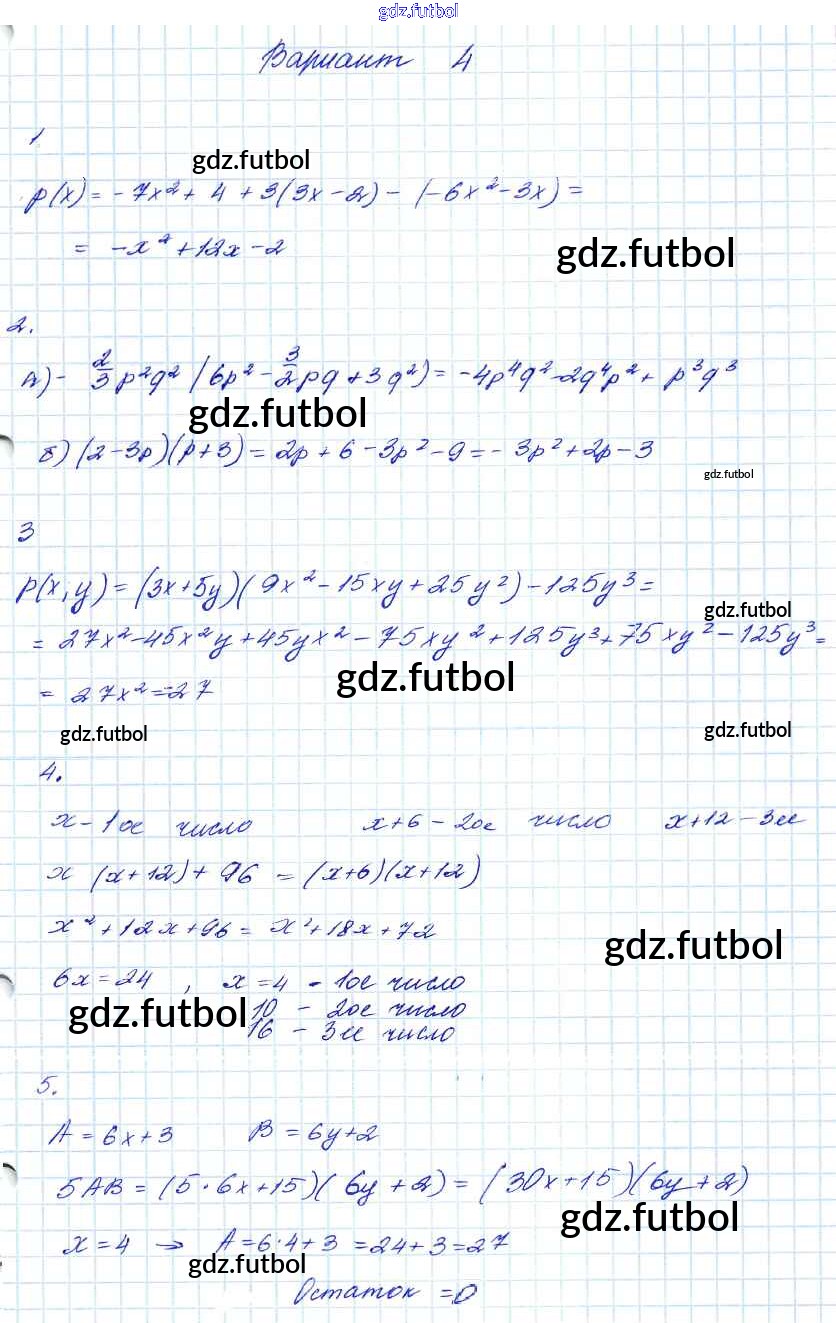 gdz.futbol
Вариант 4
1
gdz.futbol
p(x) = - 7x² + 4 + 3(3x - 2) - (-6x² - 3x) =
= -x² + 12x - 2
gdz.futbol
2.
а) - 2/3 p²q² (6p² - 3/2 pq + 3q²) = -4p⁴q² - 2q⁴p² + p³q³
gdz.futbol
б) (2 - 3p)(p + 3) = 2p + 6 - 3p² - 9 = - 3p² + 2p - 3
gdz.futbol
3
p(x, y) = (3x + 5y)(9x² - 15xy + 25y²) - 125y³ =
gdz.futbol
= 27x² - 45x²y + 45yx² - 75xy² + 125y³ + 75xy² - 125y³ =
= 27x² = -27
gdz.futbol
gdz.futbol
gdz.futbol
4.
x - 1ое число x + 6 - 2ое число x + 12 - 3ее
x (x + 12) + 96 = (x + 6)(x + 12)
x² + 12x + 96 = x² + 18x + 72
gdz.futbol
6x = 24 , x = 4 - 1ое число
gdz.futbol
10 - 2ое число
16 - 3ее число
5.
A = 6x + 3 B = 6y + 2
5AB = (5 · 6x + 15)(6y + 2) = (30x + 15)(6y + 2)
gdz.futbol
x = 4 → A = 6·4 + 3 = 24 + 3 = 27
gdz.futbol
Остаток = 0